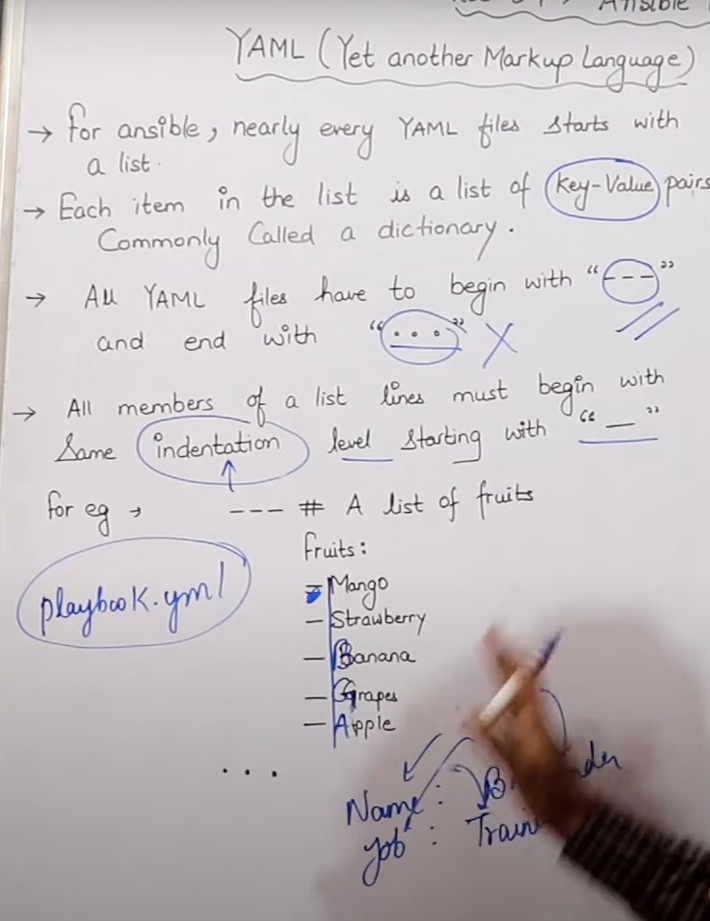 Ansible
YAML (Yet another Markup Language)
→ For ansible, nearly every YAML files starts with
a list.
→ Each item in the list is a list of key-Value pairs
Commonly Called a dictionary.
→ All YAML files have to begin with “---”
and end with “...” X
→ All members of a list lines must begin with
Same indentation level starting with “_”
For eg → --- # A list of fruits
Fruits:
playbook.yml
- Mango
- Strawberry
- Banana
- Grapes
- Apple
...
Name:
Job: